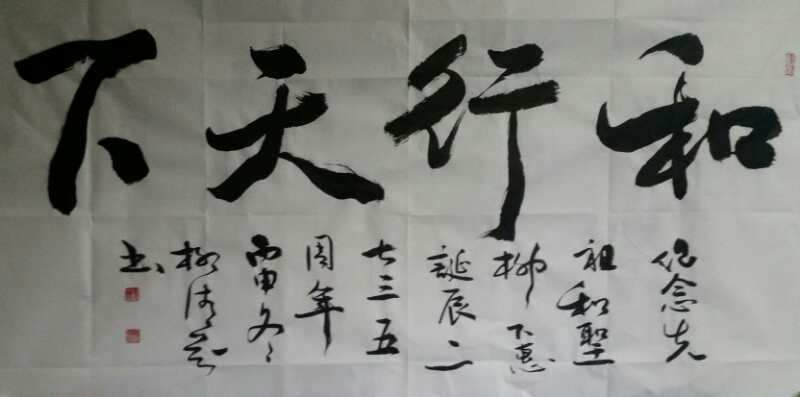 和行天下
纪念先
祖和聖
柳下惠
誕辰二
七三五
周年
丙申冬
柳清
书